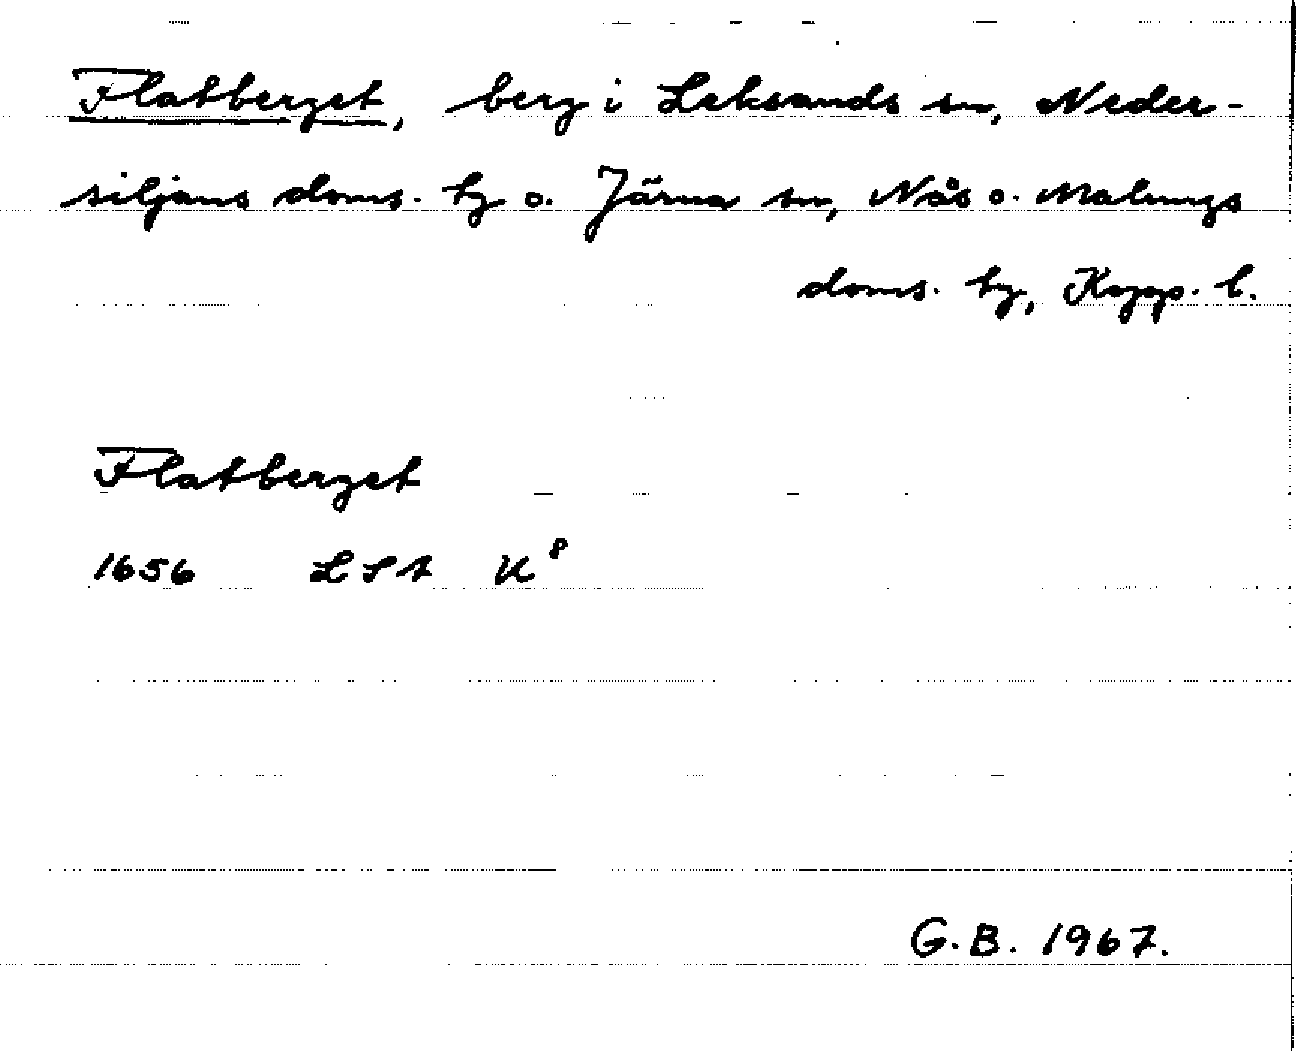 Flatberget, berg i Leksands sn, Neder-
siljans doms. hg o. Järna sn, Nås o. Malungs
doms. hg, Kopp. l.
Flatberget
1656 LSA K⁸
G.B. 1967.